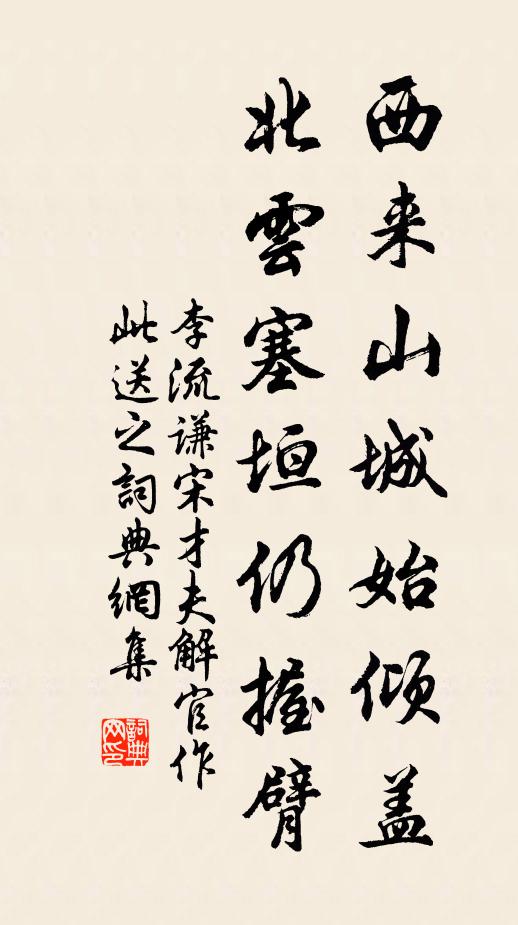 西来山城始倾盖
北雲塞垣仍握臂
李流謙宋才夫解官作
此送之詞典網集
詞典网印